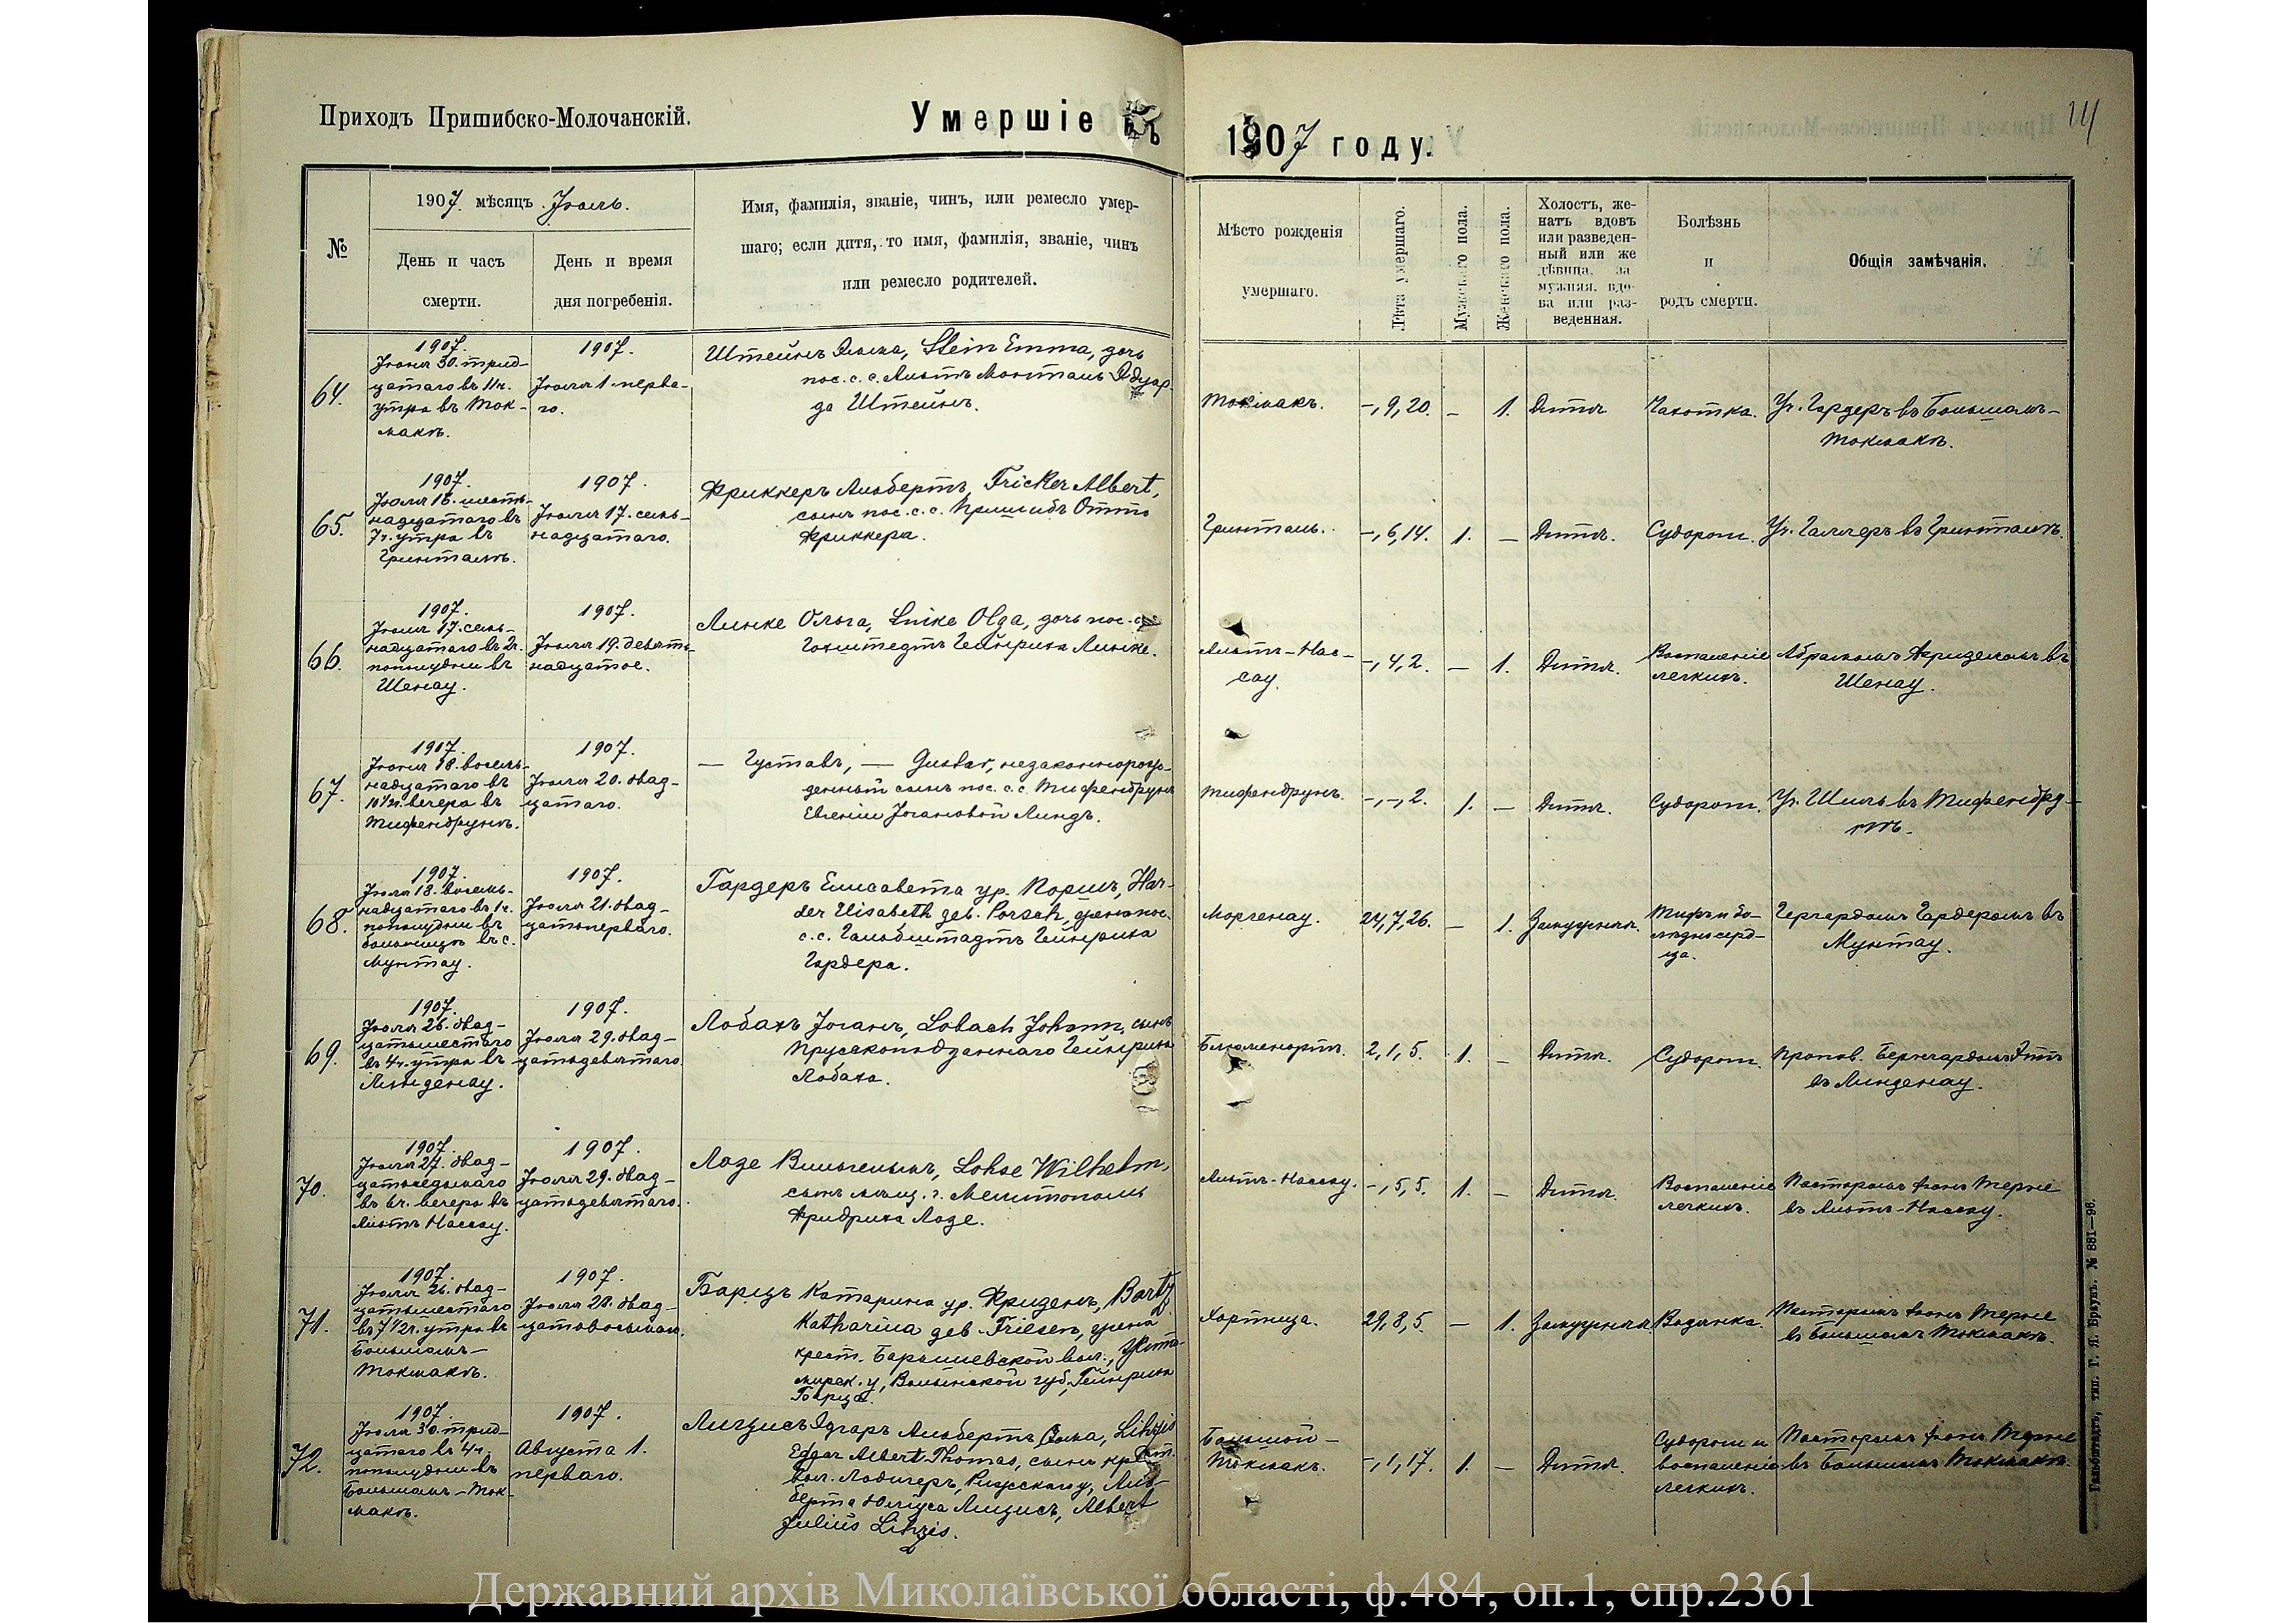 Приходъ Пришибско-Молочанскій.
Умершіе въ
1907 году.
111
№
1907 мѣсяцъ Іюль.
День и часъ
смерти.
День и время
дня погребенія.
Имя, фамилія, званіе, чинъ, или ремесло умер-
шаго; если дитя, то имя, фамилія, званіе, чинъ
или ремесло родителей.
Мѣсто рожденія
умершаго.
Лѣта умершаго.
Мужскаго пола.
Женскаго пола.
Холостъ, же-
натъ вдовъ
или разведен-
ный или же
дѣвица, за
мужняя, вдо-
ва или раз-
веденная.
Болѣзнь
и
родъ смерти.
Общія замѣчанія.
64.
1907.
Іюня 30. трид-
цатаго въ 11 ч.
утра въ Ток-
макѣ.
1907.
Іюля 1. перва-
го.
Штейнъ Эмма, Stein Emma, дочь
пос. с. с. Альтъ Монталь Эдуар-
да Штейнъ.
Токмакъ.
-, 9, 20.
-
1.
Дитя
Чахотка.
Уч. Гардеръ въ Большомъ-
Токмакѣ.
65.
1907.
Іюля 16. шест-
надцатаго въ
7 ч. утра въ
Гринталѣ.
1907.
Іюля 17. семь-
надцатаго.
Фриккеръ Альбертъ, Fricker Albert,
сынъ пос. с. с. Пришибъ Отто
Фриккера.
Гринталь.
-, 6, 14.
1.
-
Дитя.
Судороги.
Уч. Галлеръ въ Гринталѣ.
66.
1907.
Іюля 17. семь-
надцатаго въ 2 ч.
пополудни въ
Шенау.
1907.
Іюля 19. девят-
надцатое.
Линке Ольга, Linke Olga, дочь пос. с.
Гохштедтъ Гейнриха Линке.
Альтъ-Нас-
сау.
-, 4, 2.
-
1.
Дитя.
Воспаленіе
легкихъ.
Абрамомъ Фризеномъ въ
Шенау.
67.
1907.
Іюля 18. восемь-
надцатаго въ
10½ ч. вечера въ
Тифенбрунѣ.
1907.
Іюля 20. двад-
цатаго.
— Густавъ, — Gustav, незаконнорож-
денный сынъ пос. с. с. Тифенбрунъ
Евгеніи Іогановой Линдъ.
Тифенбрунъ.
-, -, 2.
1.
-
Дитя.
Судороги.
Уч. Шиль въ Тифенбру-
нѣ.
68.
1907.
Іюля 18. восемь-
надцатаго въ 1 ч.
пополудни въ
больницѣ въ с.
Мунтау.
1907.
Іюля 21. двад-
цатьперваго.
Гардеръ Елисавета ур. Поршъ, Har-
der Elisabeth geb. Porsch, жена пос.
с. с. Гальбштадтъ Гейнриха
Гардера.
Моргенау.
24, 7, 26.
-
1.
Замужняя.
Тифъ и бо-
лѣзнь серд-
ца.
Гергардомъ Гардеромъ въ
Мунтау.
69.
1907.
Іюля 26. двад-
цатьшестаго
въ 4 ч. утра въ
Линденау.
1907.
Іюля 29. двад-
цатьдевятаго.
Лобахъ Іоганъ, Lobach Johann, сынъ
Прусскоподданнаго Гейнриха
Лобаха.
Блюменортъ.
2, 1, 5.
1.
-
Дитя.
Судороги.
Пропов. Бернгардомъ Эппъ
въ Линденау.
70.
1907.
Іюля 27. двад-
цатьседьмаго
въ 6 ч. вечера въ
Альтъ Нассау.
1907.
Іюля 29. двад-
цатьдевятаго.
Лозе Вильгельмъ, Lohse Wilhelm,
сынъ мѣщ. г. Мелитополь
Фридриха Лозе.
Альтъ-Нассау.
-, 5, 5.
1.
-
Дитя.
Воспаленіе
легкихъ.
Пасторомъ фонъ Терне
въ Альтъ-Нассау.
71.
1907.
Іюля 26. двад-
цатьшестаго
въ 7½ ч. утра въ
Большомъ-
Токмакѣ.
1907.
Іюля 28. двад-
цатьвосьмаго.
Барцъ Катарина ур. Фризенъ, Bartz
Katharina geb. Friesen, жена
крест. Барашевской вол., Жито-
мирск. у., Волынской губ., Гейнриха
Барца.
Хортица.
29, 8, 5.
-
1.
Замужняя.
Водянка.
Пасторомъ фонъ Терне
въ Большомъ Токмакѣ.
72.
1907.
Іюля 30. трид-
цатаго въ 4 ч.
пополудни въ
Большомъ-Ток-
макѣ.
1907.
Августа 1.
перваго.
Лигзисъ Эдгаръ Альбертъ Тома, Lihzis
Edgar Albert Thomas, сынъ крест.
вол. Лодигеръ, Рижскаго у., Аль-
берта Юлiуса Лицисъ, Albert
Julius Lihzis.
Большой-
Токмакъ.
-, 1, 17.
1.
-
Дитя.
Судороги и
воспаленіе
легкихъ.
Пасторомъ фонъ Терне
въ Большомъ Токмакѣ.
Гальбштадтъ, тип. Г. Я. Браунъ. № 881—96.
Державний архів Миколаївської області, ф.484, оп.1, спр.2361